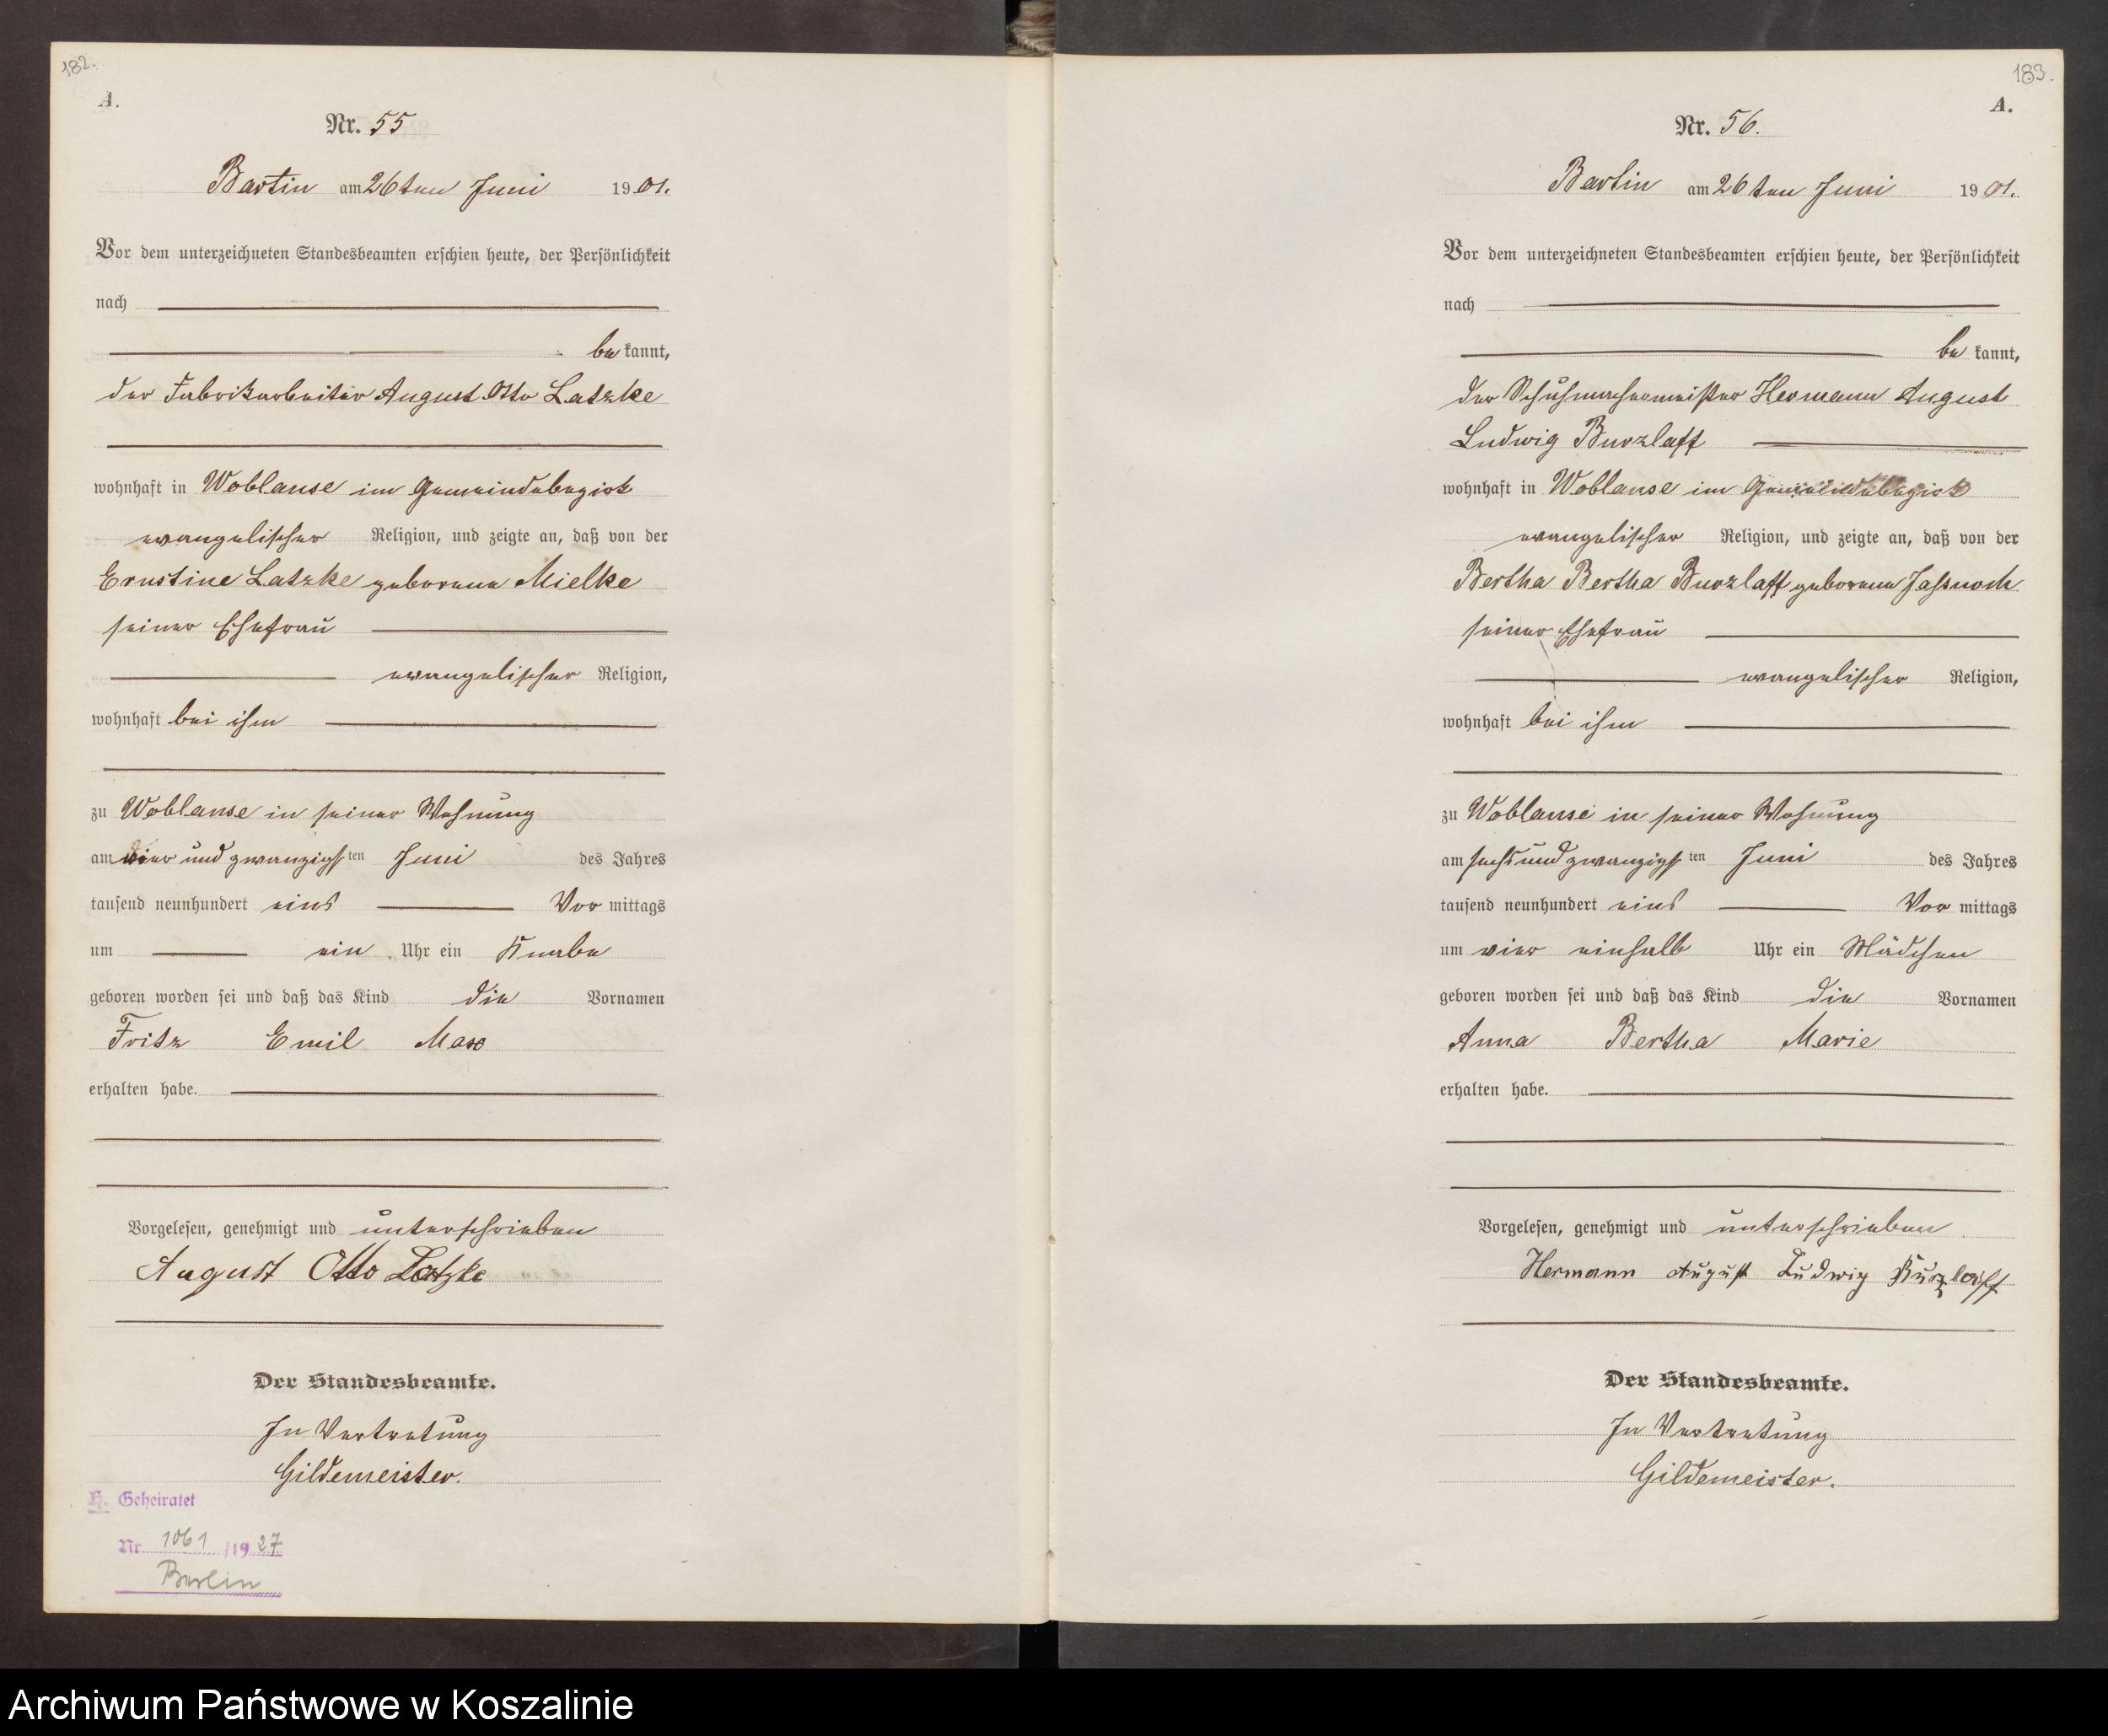 182.
A.
Nr. 55
Bartin am 26ten Juni 1901.
Vor dem unterzeichneten Standesbeamten erschien heute, der Persönlichkeit
nach
bekannt,
der Fabrikarbeiter August Otto Latzke
wohnhaft in Woblanse im Gemeindebezirk
evangelischer Religion, und zeigte an, daß von der
Ernstine Latzke geborene Mielke
seiner Ehefrau
evangelischer Religion,
wohnhaft bei ihm
zu Woblanse in seiner Wohnung
am vier und zwanzigsten Juni des Jahres
tausend neunhundert eins Vormittags
um ein Uhr ein Knabe
geboren worden sei und daß das Kind die Vornamen
Fritz Emil Max
erhalten habe.
Vorgelesen, genehmigt und unterschrieben
August Otto Latzke
Der Standesbeamte.
In Vertretung
Gildemeister.
H. Geheiratet
Nr. 1061/1927
Berlin
183.
A.
Nr. 56.
Bartin am 26ten Juni 1901.
Vor dem unterzeichneten Standesbeamten erschien heute, der Persönlichkeit
nach
bekannt,
der Schuhmachermeister Hermann August
Ludwig Burzlaff
wohnhaft in Woblanse im Gemeindebezirk
evangelischer Religion, und zeigte an, daß von der
Bertha Bertha Burzlaff geborene
seiner Ehefrau
evangelischer Religion,
wohnhaft bei ihm
zu Woblanse in seiner Wohnung
am sechsundzwanzigsten Juni des Jahres
tausend neunhundert eins Vormittags
um vier einhalb Uhr ein Mädchen
geboren worden sei und daß das Kind die Vornamen
Anna Bertha Marie
erhalten habe.
Vorgelesen, genehmigt und unterschrieben
Hermann August Ludwig Burzlaff
Der Standesbeamte.
In Vertretung
Gildemeister.
Archiwum Państwowe w Koszalinie